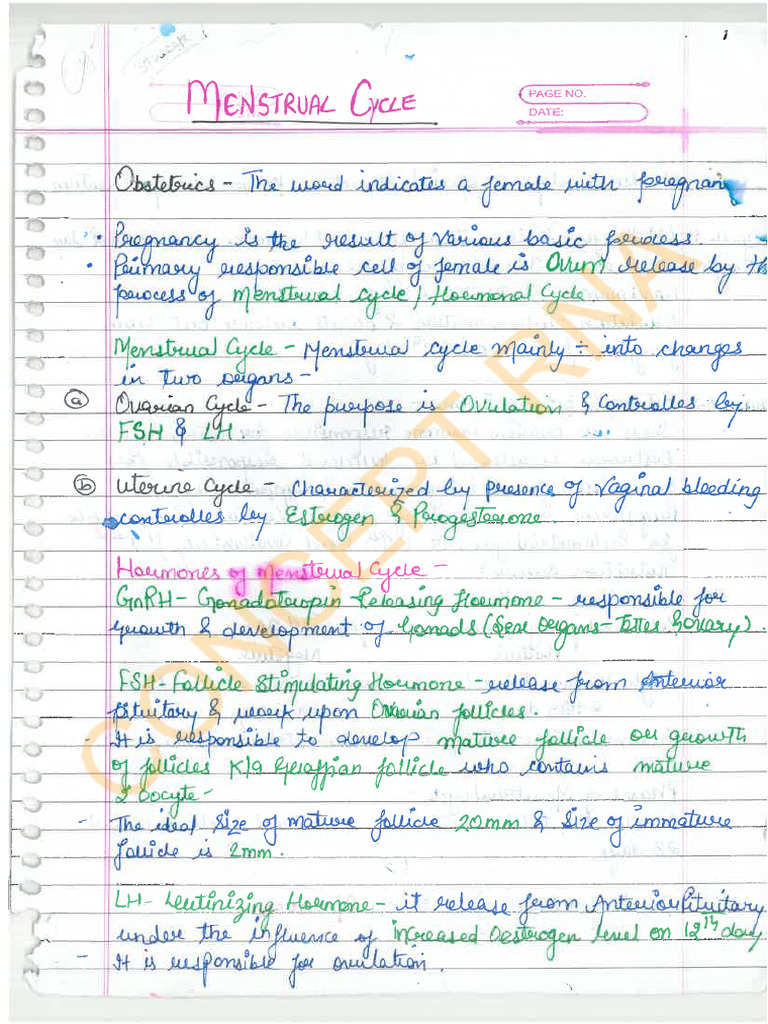 1
MENSTRUAL CYCLE
PAGE NO.
DATE:
Obstetrics - The word indicates a female with
• Pregnancy is the result of various basic process.
• Primary responsible cell of female is Ovum release by
process of Menstrual cycle / Hormonal Cycle
Menstrual Cycle - Menstrual cycle mainly ÷ into changes
in two organs -
(a) Ovarian Cycle - The purpose is Ovulation & controlles by
FSH & LH.
(b) Uterine Cycle - characterized by presence of vaginal bleeding
controlles by Estrogen & Progesterone.
Hormones of Menstrual Cycle -
GnRH - Gonadotropin Releasing Hormone - responsible for
growth & development of Gonads (Sex Organs - Testes & ovary).
FSH - Follicle Stimulating Hormone - release from Anterior
pituitary & work upon Ovarian follicles.
- It is responsible to develop mature follicle or growth
of follicles K/a Graffian follicle who contains mature
2 Oocyte -
- The ideal size of mature follicle 20mm & size of immature
follicle is 2mm.
LH - Leutinizing Hormone - it release from Anterior Pituitary
under the influence of increased Oestrogen level on 12th day
- It is responsible for ovulation.
CONCEPT RNA